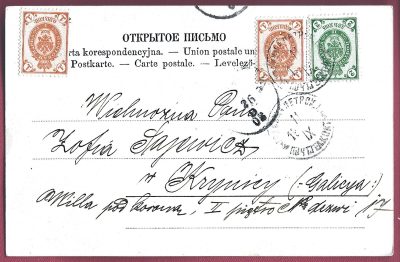 ОТКРЫТОЕ ПИСЬМО
rta korespondencyjna. — Union postale un
Postkarte. — Carte postale. — Levelező-
Wielmożna Pani
Zofia Sajewicz
w Krynicy (: Galicya :)
Willa pod koroną, II piętro № drzwi 17
26
8
02